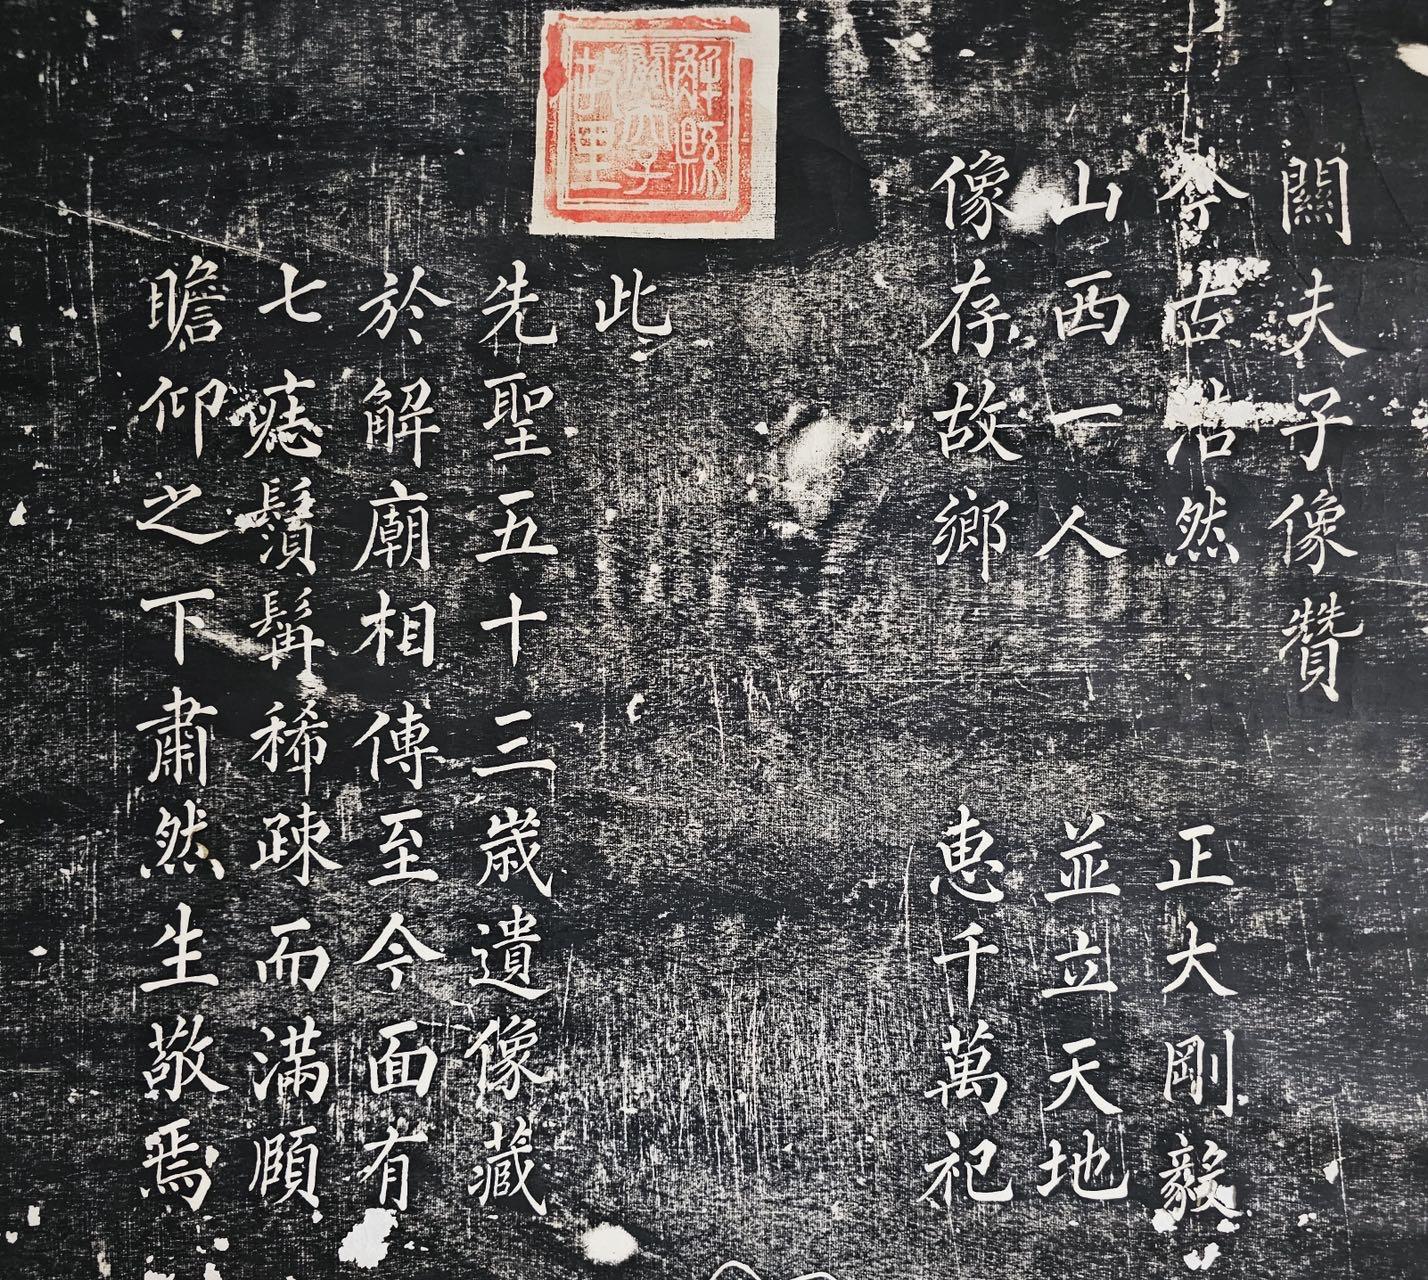 解縣
關夫子
故里
關夫子像贊
今古浩然 正大剛毅
山西一人 並立天地
像存故鄉 惠千萬祀
此
先聖五十三歲遺像藏
於解廟相傳至今面有
七痣鬚髯稀疎而滿頤
瞻仰之下肅然生敬焉